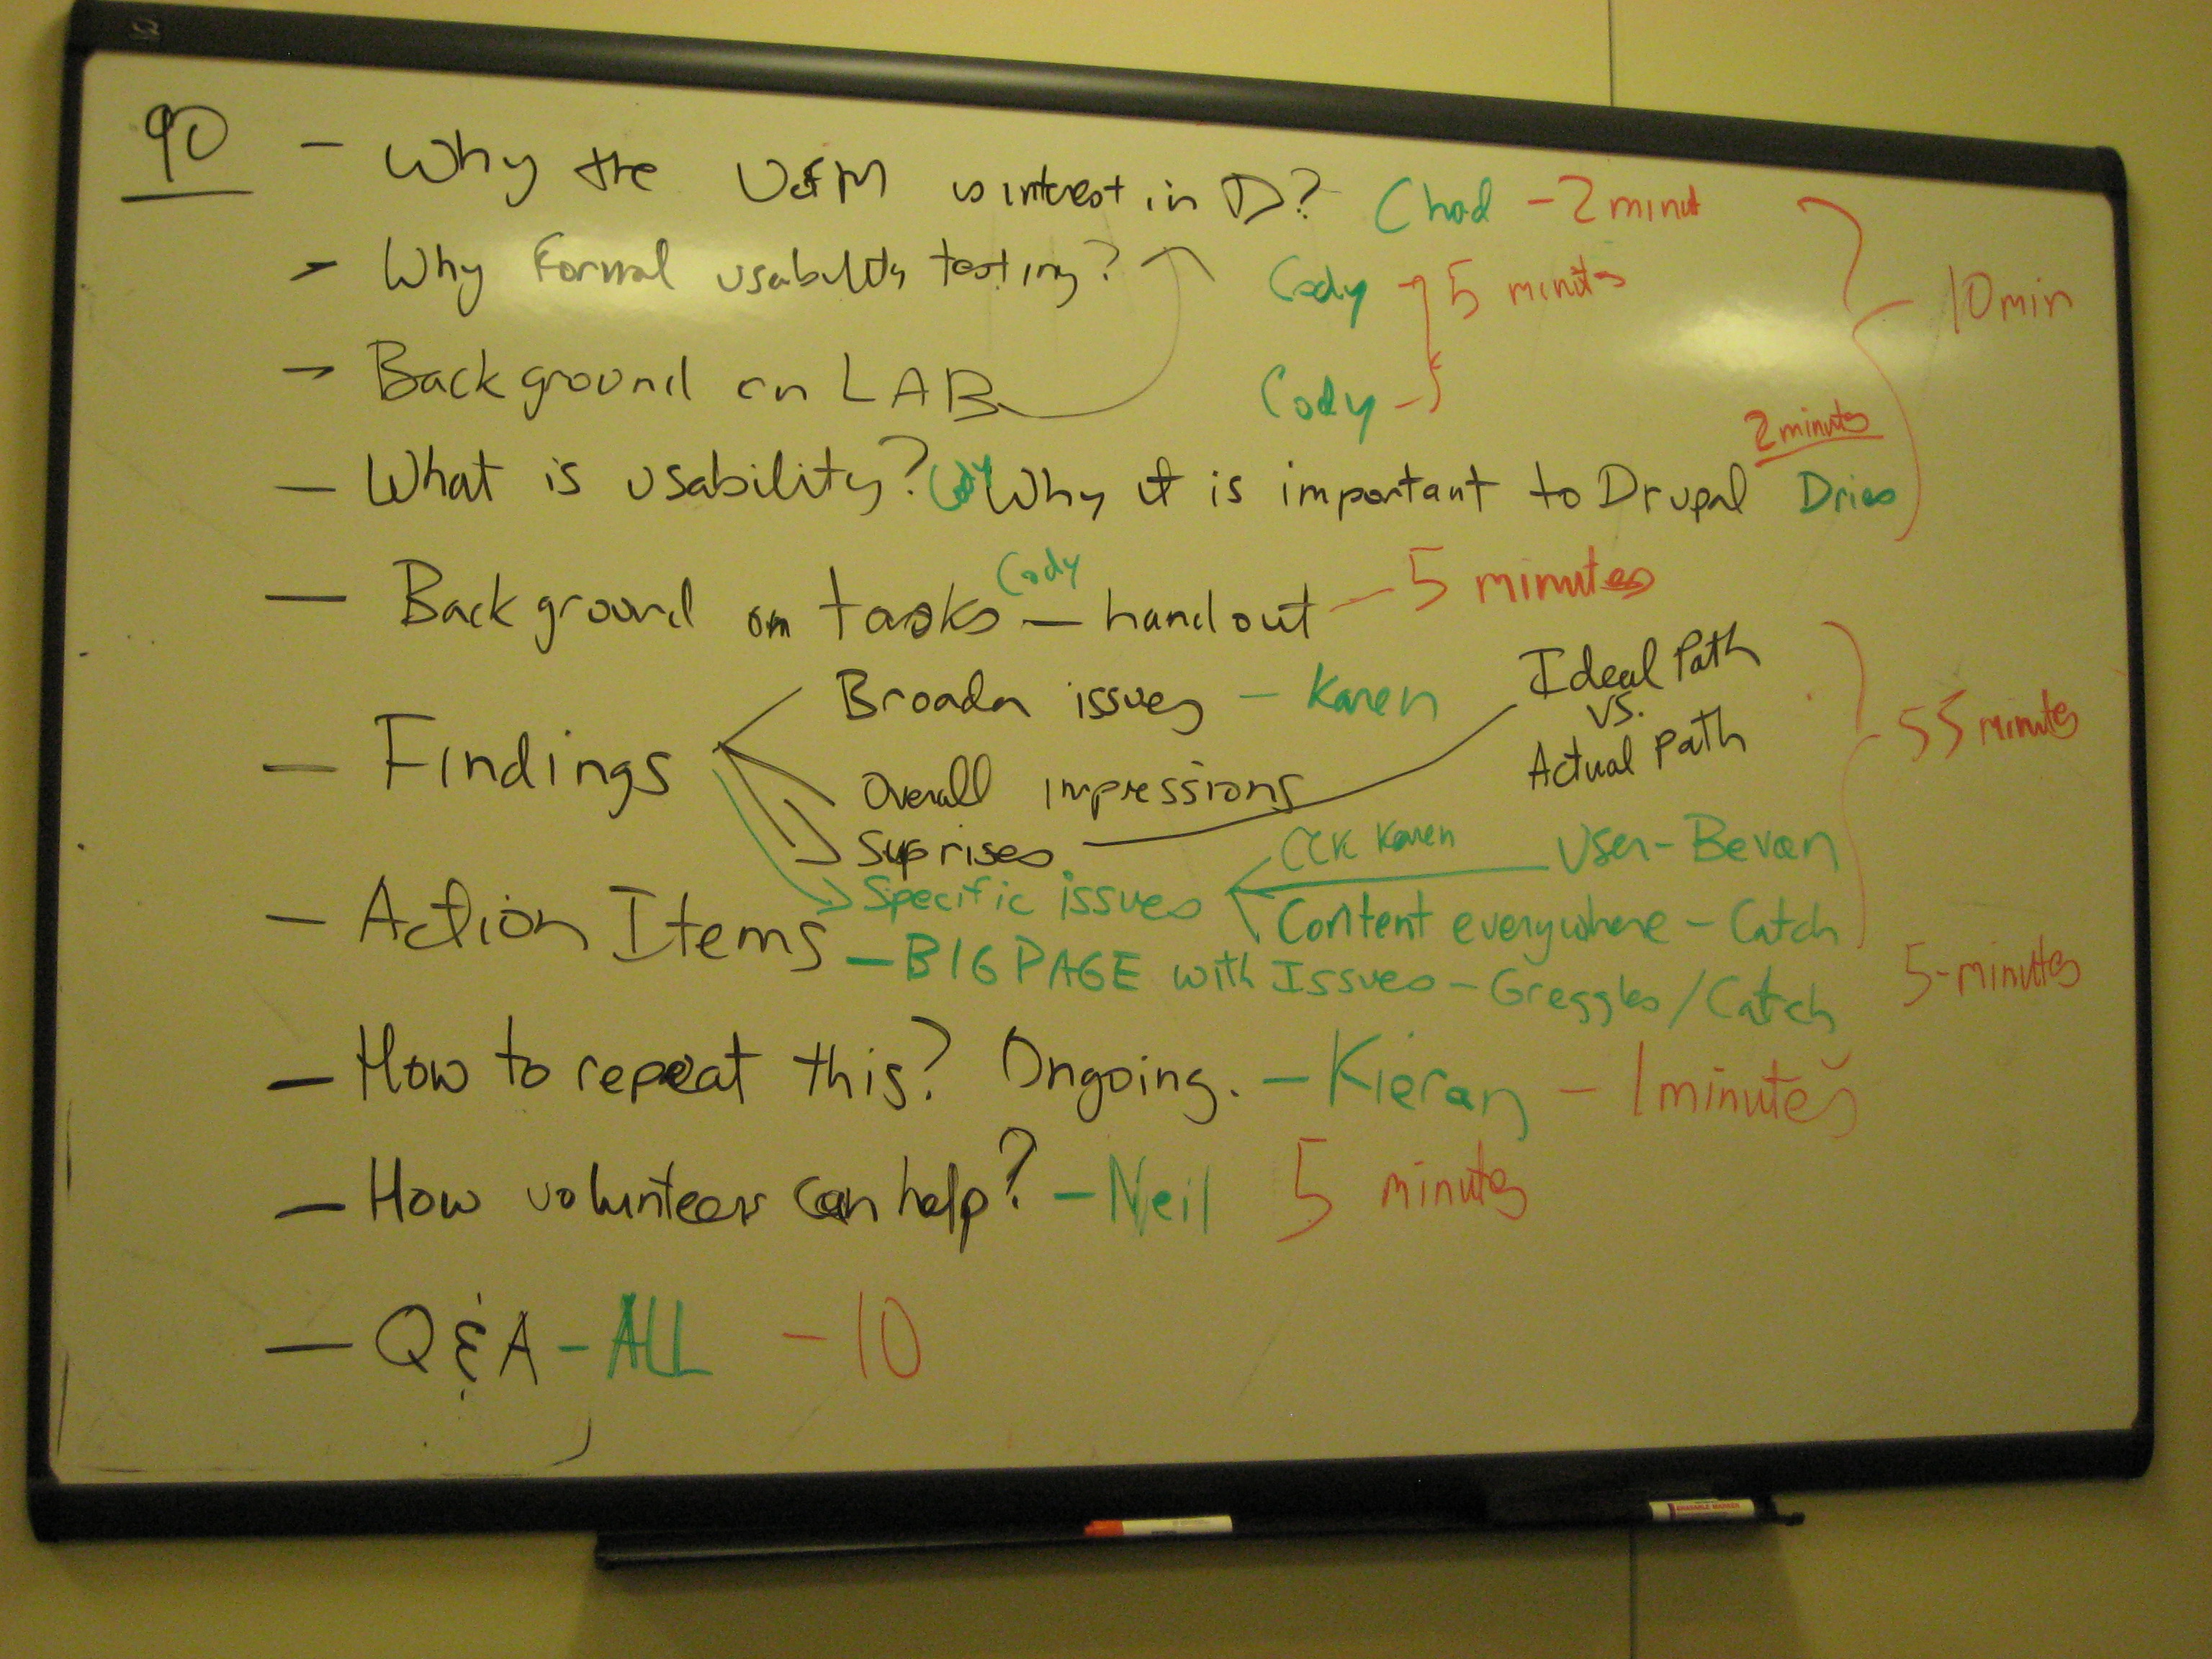 90
- Why the UofM is interest in D? Chad - 2 minut
- Why Formal usability testing? Cody - 5 minutes
10 min
- Background on LAB Cody -
2 minutes
- What is usability? Cody Why it is important to Drupal Dries
- Background on tasks Cody - handout - 5 minutes
- Findings
Broader issues - Karen
Ideal Path
vs.
Actual Path
55 minutes
Overall impressions
Suprises
CCK Karen
User - Bevan
Specific issues
Content everywhere - Catch
- Action Items - BIG PAGE with Issues - Greggles / Catch
5-minutes
- How to repeat this? Ongoing. - Kieran - 1 minutes
- How volunteers can help? - Neil 5 minutes
- Q & A - ALL - 10